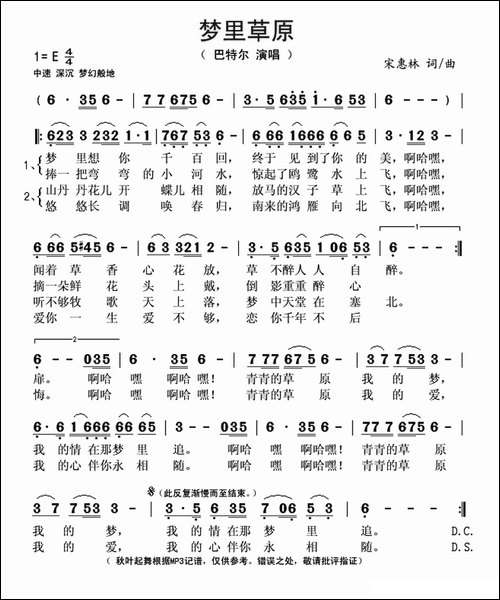 梦里草原
1=E 4/4
（ 巴特尔 演唱 ）
宋惠林 词/曲
中速 深沉 梦幻般地
（ 6 · 35 6 - | 77 675 6 - | 3·5 635 1·635 | 6 - - - ）|
‖: 623 3 232 1·1 | 767 53 6 - | 666 1666 666 | 1·2 353 - |
1、 梦 里想 你 千 百回， 终于 见 到了你 的 美，啊哈嘿，
捧一把弯 弯的小 河 水， 惊起了鸥 鹭 水 上 飞，啊哈嘿，
2、 山丹 丹花儿 开 蝶儿 相 随， 放马的汉 子 草 上 飞，啊哈嘿，
悠 悠长 调 唤 春归， 南来的鸿 雁 向 北 飞，啊哈嘿，
6 66 5♯45 6 - | 3·6 3321 2 - | 3·5 6535 1 06 53 | 6 - - - :‖
闻着 草 香 心 花 放， 草 不醉人 人 自 醉。
摘一朵鲜 花 头 上 戴， 倒 影重重醉 心
听不够牧 歌 天 上 落， 梦 中天堂 在 塞 北。
爱你 一 生 爱 不 够， 恋 你千年 不 后
6 - - 035 | 6 - - 356 | 6 - - - | 77 77675 6 - | 3 77 53 - |
扉。 啊哈 嘿 啊哈 嘿！ 青青的草 原 我 的 梦，
悔。 啊哈 嘿 啊哈 嘿！ 青青的草 原 我 的 爱，
6·6 1 666 66 65 | 3 - - 035 | 6 - - 356 | 6 - - - | 77 77675 6 - |
我 的情 在那梦 里 追。 啊哈 嘿 啊哈嘿！ 青青的草 原
我 的心 伴你永 相 随。 啊哈 嘿 啊哈嘿！ 青青的草 原
（此反复渐慢而至结束。）
3 7 7 53 - | 3·5 3 21 7 12 53 | 6 - - - ‖
我 的 梦， 我 的情 在那 梦 里 追。 D.C.
我 的 爱， 我 的心 伴你 永 相 随。 D.S.
（ 秋叶起舞根据MP3记谱，仅供参考。错误之处，敬请批评指证）